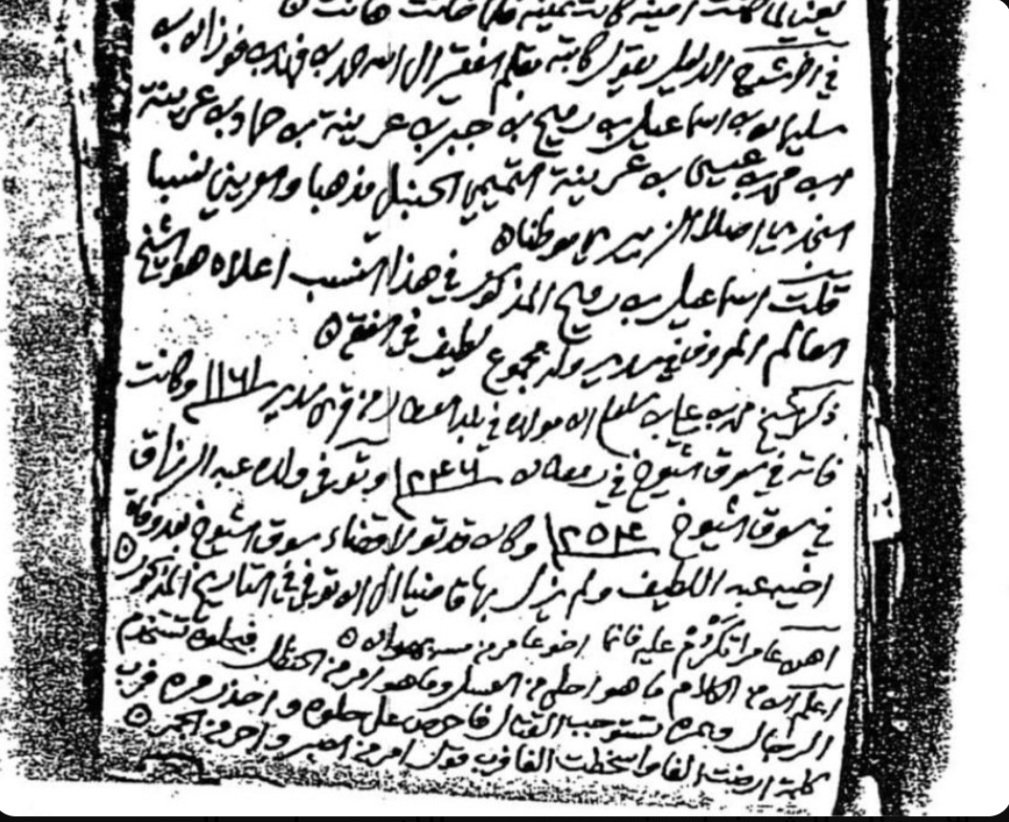 يعني لما كانت امينه كانت ثمينه فلما خانت هانت ه
في اخر شرح الدليل يقول كاتبه بقلم الفقير الى الله احمد بن فهد بن فوزان بن
سليمان بن اسماعيل بن رميح بن جبر بن عرينة بن حماد بن عرينة
ابن محمد بن عيسى بن عرينة التميمي الحنبلي مذهبا والعريني نسبا
النجدي اصلا الزبيري موطنا ه
قلت اسماعيل بن رميح المذكور في هذا النسب اعلاه هو الشيخ
العالم المعروف في سدير وله مجموع لطيف في الفقه ه
ذكر الشيخ محمد بن علي بن سلوم ان مولده في بلد العطار من قرى سدير ١١٦١ وكانت
فاته في سوق الشيوخ في رمضان ١٢٤٦ وتوفي ولده عبد الرزاق
في سوق الشيوخ ١٢٥٤ وكان قد تولا قضاء سوق الشيوخ بعد وفاة
اخيه عبد اللطيف ولم يزل بها قاضيا الى ان توفي في التاريخ المذكور ه
اهن عامرا تكرم عليه فانما اخو عامر من مسه بهوان ه
اعلم ان من الكلام ما هو احلى من العسل وما هو امر من الحنظل فبحلوه تستخدم
الرجال وبمره تستوجب القتال فاحرص على حلوه واحذر مره فرب
كلمة ارضت الفا واسخطت الفا ورب قول امر من الصبر واحر من الجمر ه